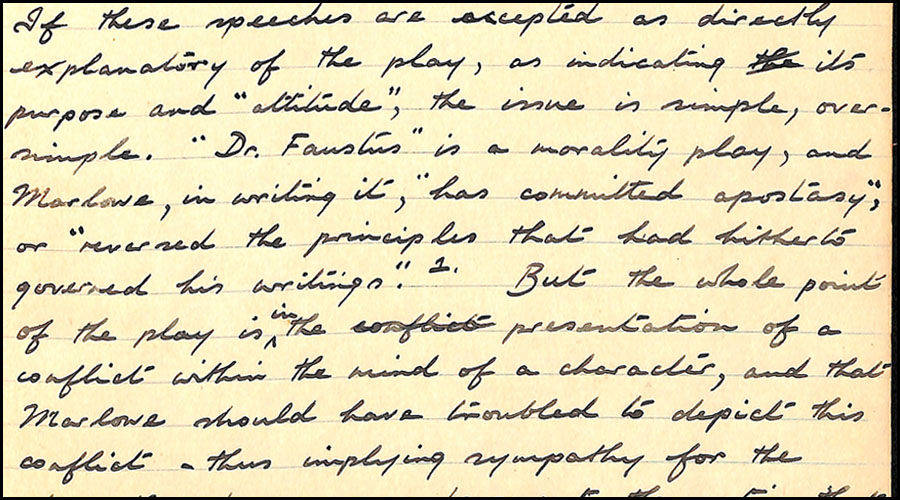 If these speeches are accepted as directly
explanatory of the play, as indicating the its
purpose and "attitude", the issue is simple, over-
simple. "Dr. Faustus" is a morality play, and
Marlowe, in writing it, "has committed apostasy",
or "reversed the principles that had hitherto
governed his writings". 1. But the whole point
of the play is in the conflict presentation of a
conflict within the mind of a character, and that
Marlowe should have troubled to depict this
conflict - thus implying sympathy for the